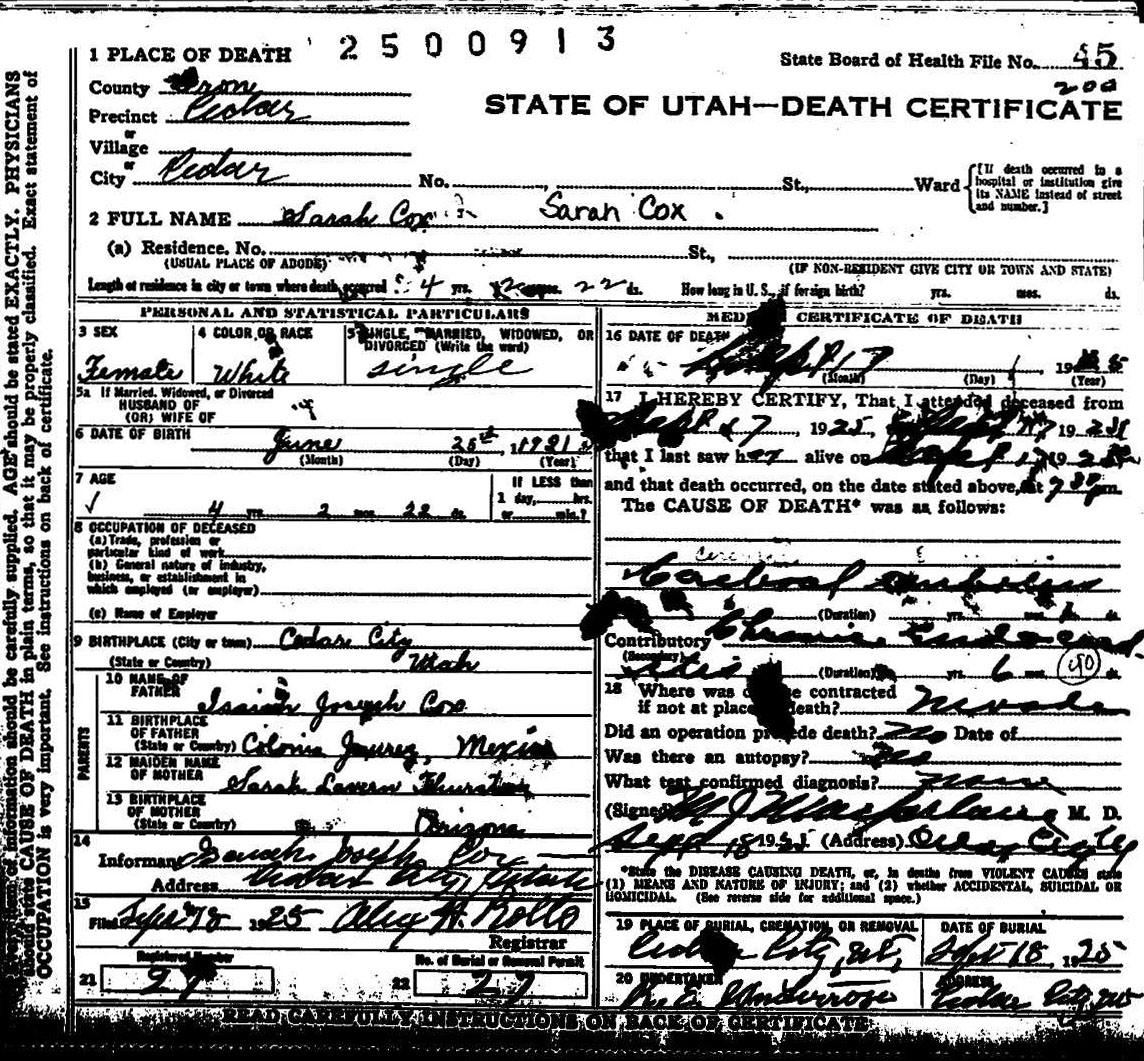 1 PLACE OF DEATH 2500913
State Board of Health File No. 45
200
County Iron
STATE OF UTAH—DEATH CERTIFICATE
Precinct Cedar
or
Village
or
City Cedar No. St., Ward
[If death occurred in a
hospital or institution give
its NAME instead of street
and number.]
2 FULL NAME Sarah Cox Sarah Cox
(a) Residence. No. St.,
(USUAL PLACE OF ABODE)
(IF NON-RESIDENT GIVE CITY OR TOWN AND STATE)
Length of residence in city or town where death occurred 4 yrs. 2 mos. 22 ds. How long in U. S., if foreign birth? yrs. mos. ds.
PERSONAL AND STATISTICAL PARTICULARS
3 SEX
Female
4 COLOR OR RACE
White
5 SINGLE, MARRIED, WIDOWED, OR
DIVORCED (Write the word)
single
5a If Married, Widowed, or Divorced
HUSBAND OF
(OR) WIFE OF
6 DATE OF BIRTH June 25th, 1921
(Month) (Day) (Year)
7 AGE
4 yrs. 2 mos. 22 ds.
If LESS than
1 day, hrs.
or min.?
8 OCCUPATION OF DECEASED
(a) Trade, profession or
particular kind of work
(b) General nature of industry,
business, or establishment in
which employed (or employer)
(c) Name of Employer
9 BIRTHPLACE (City or town) Cedar City
(State or Country) Utah
PARENTS
10 NAME OF
FATHER Isaiah Joseph Cox
11 BIRTHPLACE
OF FATHER
(State or Country) Colonia Jaurez, Mexico
12 MAIDEN NAME
OF MOTHER
Sarah Lavern Thurston
13 BIRTHPLACE
OF MOTHER
(State or Country) Arizona
14
Informant Isaiah Joseph Cox
Address Cedar City, Utah
15
Filed Sept 18 1925 Alex H. Rollo
Registrar
Registered Number
21 27
No. of Burial or Removal Permit
22 27
MEDICAL CERTIFICATE OF DEATH
16 DATE OF DEATH
Sept 17 1925
(Month) (Day) (Year)
17 I HEREBY CERTIFY, That I attended deceased from
Sept 17, 1925, Sept 17 192
that I last saw her alive on Sept 17 192
and that death occurred, on the date stated above, at 7 30 pm.
The CAUSE OF DEATH* was as follows:
Cerebral embolism
(Duration) yrs. mos. ds.
Contributory Chronic Endocard
(Secondary)
itis (Duration) yrs. 6 mos. ds.
90
18 Where was disease contracted
if not at place of death? Nevada
Did an operation precede death? No Date of
Was there an autopsy? No
What test confirmed diagnosis? none
(Signed) M J Macfarlane M. D.
Sept 18 192 (Address) Cedar City
*State the DISEASE CAUSING DEATH, or, in deaths from VIOLENT CAUSES state
(1) MEANS AND NATURE OF INJURY; and (2) whether ACCIDENTAL, SUICIDAL OR
HOMICIDAL. (See reverse side for additional space.)
19 PLACE OF BURIAL, CREMATION, OR REMOVAL
Cedar City, Ut,
DATE OF BURIAL
Sept 18, 1925
20 UNDERTAKER
ADDRESS
Cedar City, Ut
READ CAREFULLY INSTRUCTIONS ON BACK OF CERTIFICATE
every item of information should be carefully supplied. AGE should be stated EXACTLY. PHYSICIANS
should state CAUSE OF DEATH in plain terms, so that it may be properly classified. Exact statement of
OCCUPATION is very important. See instructions on back of certificate.